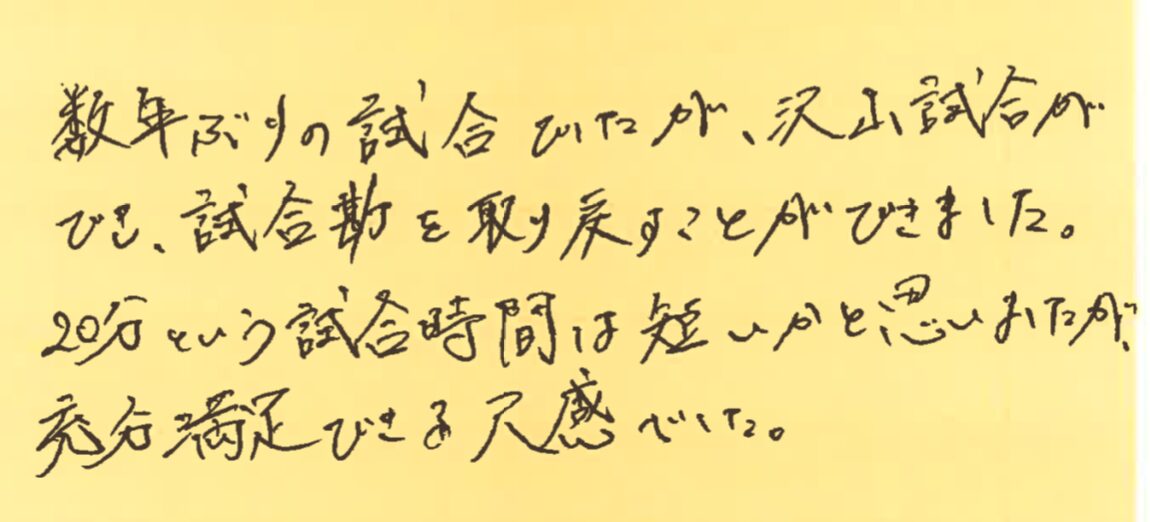 数年ぶりの試合でしたが、沢山試合が
でき、試合勘を取り戻すことができました。
20分という試合時間は短いかと思いましたが、
充分満足できる尺感でした。